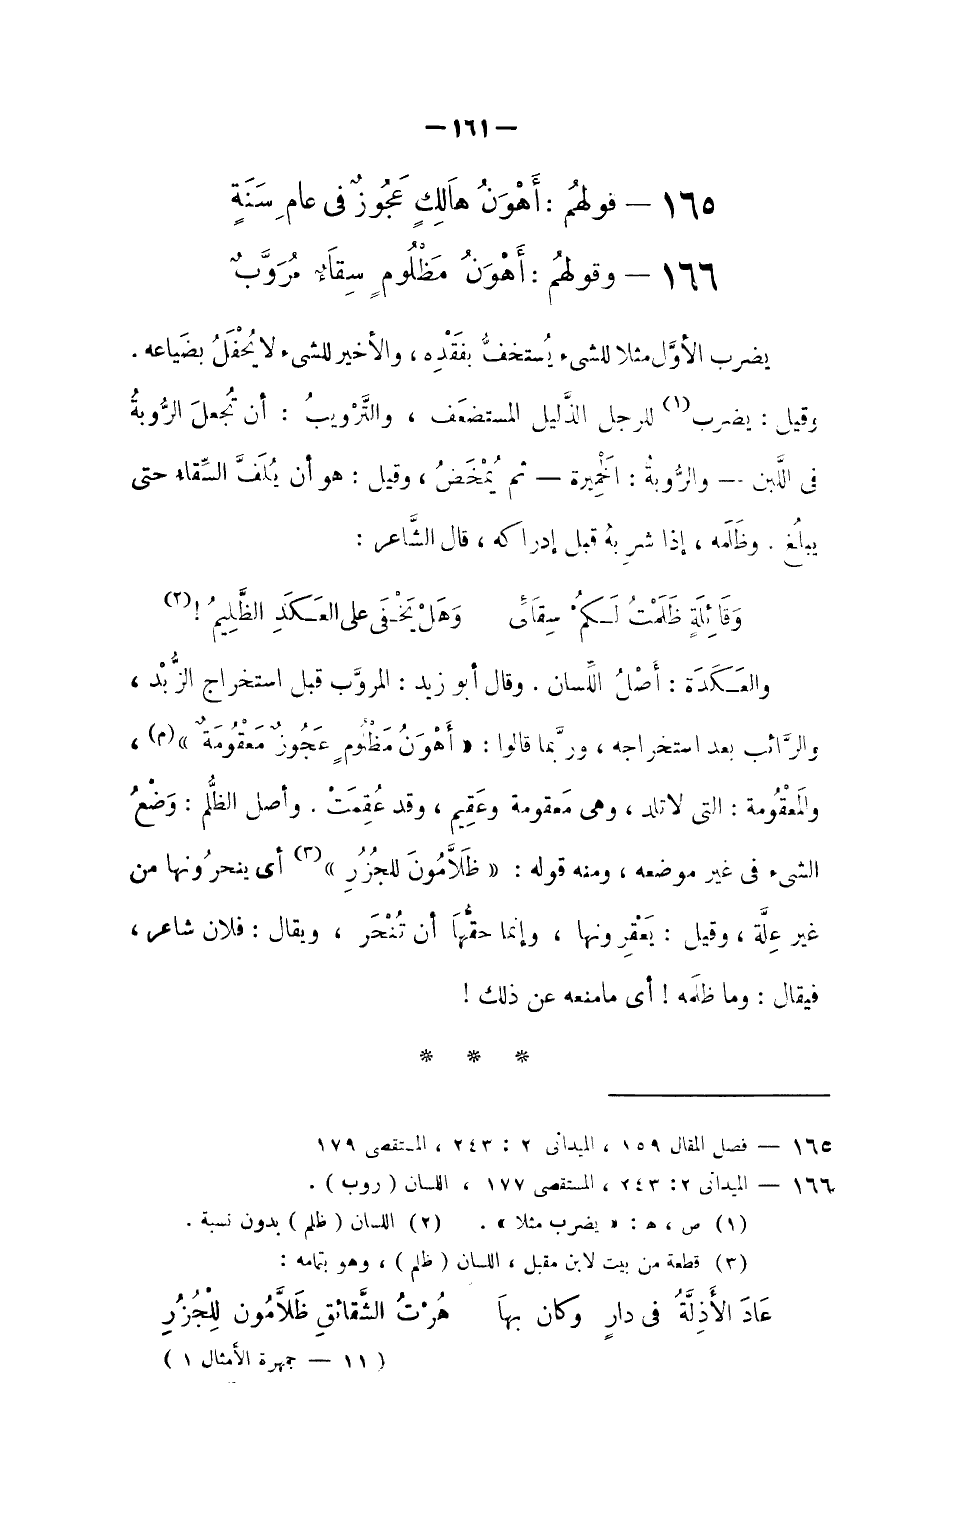 — ١٦١ —
١٦٥ — قولهُم : أَهْوَنُ هَالِكٍ عَجُوزٌ فى عام سَنَةٍ
١٦٦ — وقولهُم : أَهْوَنُ مَظْلُومٍ سِقَاءٌ مُرَوَّبٌ
يضرب الأوَّل مثلا للشىء يُستخفُّ بفَقْدِه ، والأخير للشىء لا يُحْفَلُ بضَياعه .
وقيل : يضرب(١) للرجل الذَّليل المستضعَف ، والتَّرْويبُ : أن تُجعلَ الرُّوبةُ
فى اللَّبن — والرُّوبةُ : الخَمِيرة — ثم يُمْخَضُ ، وقيل : هو أن يُلَفَّ السِّقاء حتى
يبلُغ . وظَلَمه ، إذا شرِبهُ قبل إدراكه ، قال الشَّاعر :
وَقَائِلَةٍ ظَلَمْتُ لَكُمْ سِقَائى وَهَلْ يَخْفَى على العَكَدِ الظَّلِيمُ !(٢)
والعَكَدَة : أَصْلُ اللِّسان . وقال أبو زيد : المروَّب قبل استخراج الزُّبْد ،
والرَّائب بعد استخراجه ، وربَّما قالوا : « أَهْوَنُ مَظْلُومٍ عَجُوزٌ مَعْقُومَةٌ »(م) ،
والمَعْقُومة : التى لا تلد ، وهى مَعقومة وعَقِيم ، وقد عُقِمَتْ . وأصل الظُّلم : وَضْعُ
الشىء فى غير موضعه ، ومنه قوله : « ظَلاَّمُونَ للجُزُرِ »(٣) أى ينحرُونها من
غير عِلَّة ، وقيل : يَعْقِرونها ، وإنما حقُّهَا أن تُنْحَر ، ويقال : فلان شاعر ،
فيقال : وما ظلَمه ! أى مامنعه عن ذلك !
* * *
١٦٥ — فصل المقال ١٥٩ ، الميدانى ٢ : ٢٤٣ ، المستقصى ١٧٩
١٦٦ — الميدانى ٢ : ٢٤٣ ، المستقصى ١٧٧ ، اللسان ( روب ) .
(١) ص ، هـ : « يضرب مثلا » . (٢) اللسان ( ظلم ) بدون نسبة .
(٣) قطعة من بيت لابن مقبل ، اللسان ( ظلم ) ، وهو بتمامه :
عَادَ الأَذِلَّةُ فى دارٍ وكان بهاَ هُرْتُ الشَّقائقِ ظَلاَّمُون لِلْجُزُرِ
( ١١ — جمهرة الأمثال ١ )